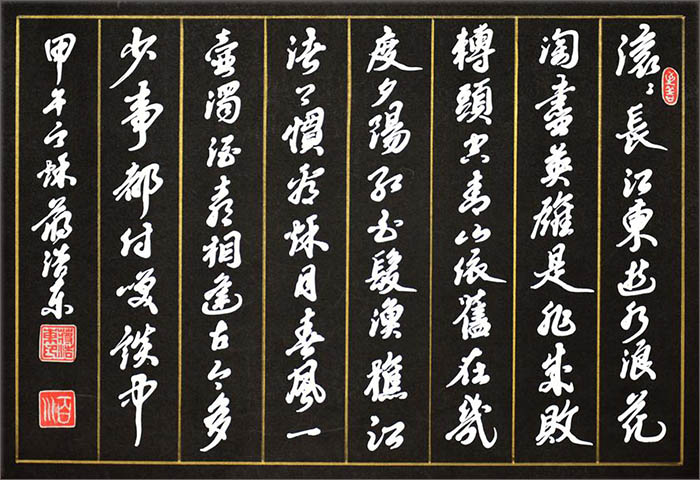 滚〻長江東逝水浪花
淘盡英雄是非成敗
轉頭空青山依舊在幾
度夕陽紅白髮漁樵江
渚上慣看秋月春風一
壺濁酒喜相逢古今多
少事都付笑談中
甲午之秋蔣浩東
蔣浩東印